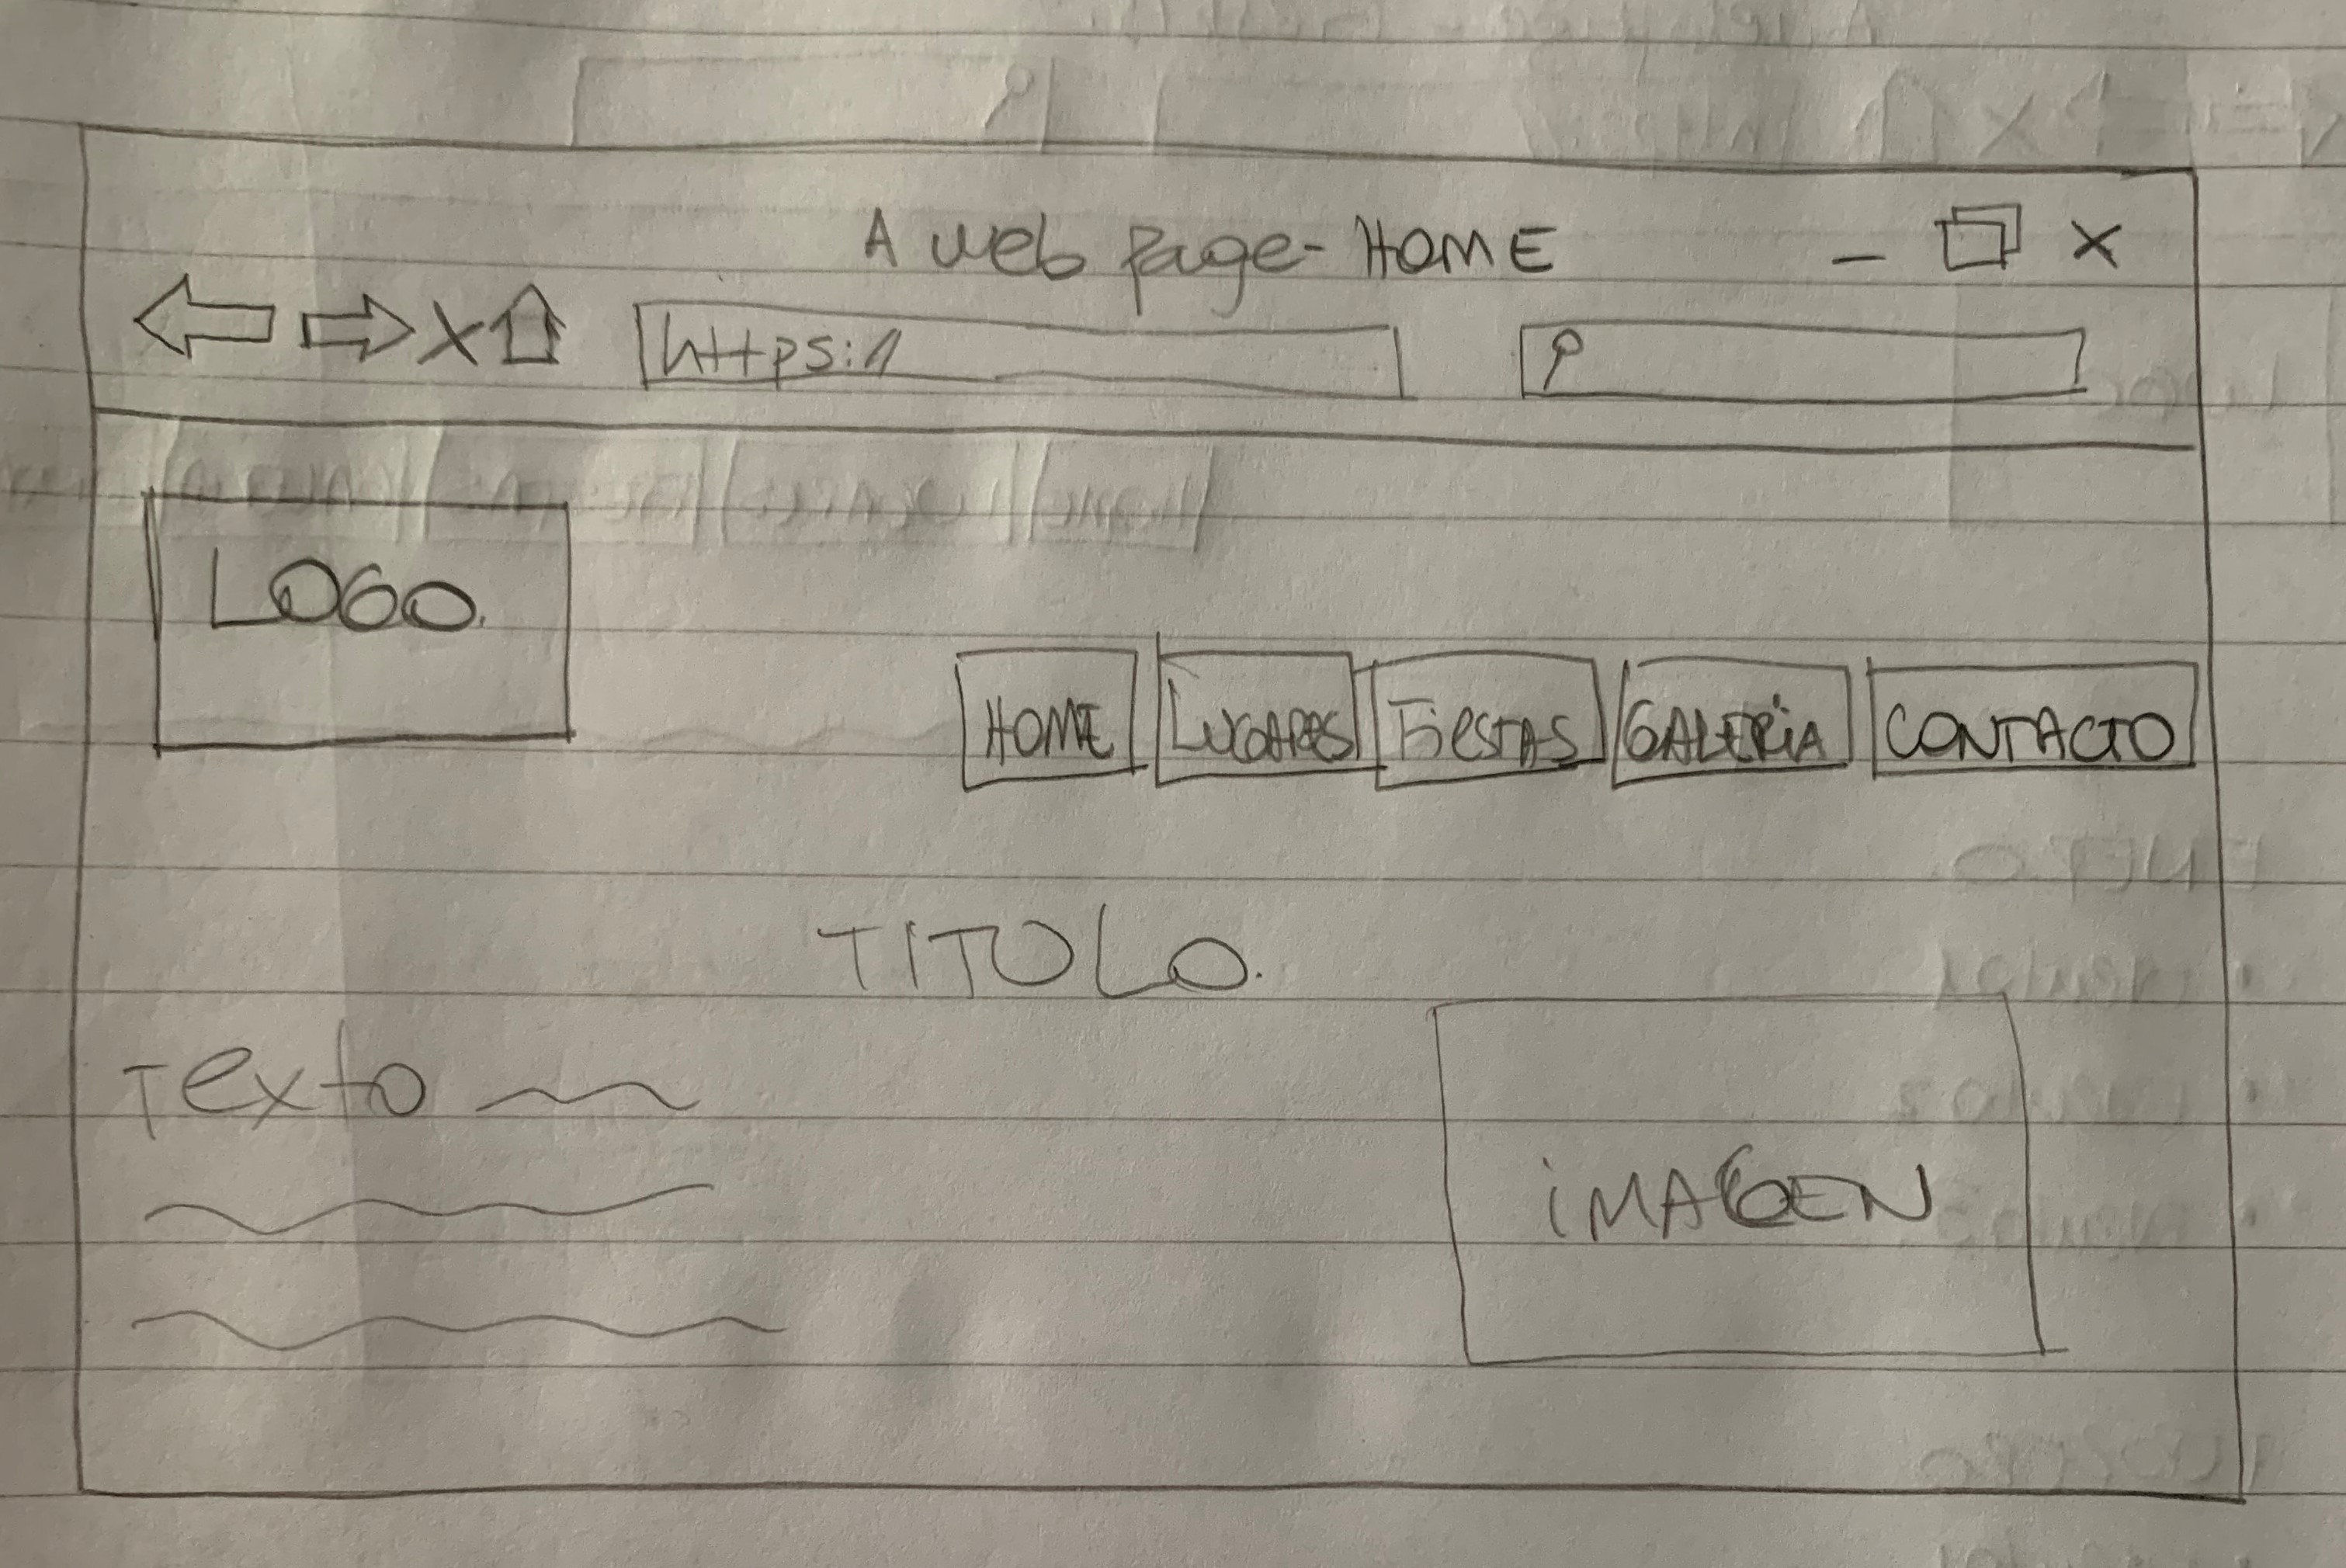 A web page - HOME
https:/
LOGO.
HOME LUGARES FiESTAS GALERiA CONTACTO
TITOLO.
Texto
iMAGEN